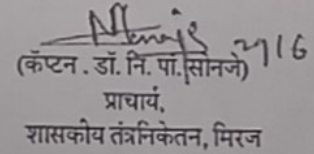 २५/६
(कॅप्टन. डॉ. नि. पां. सोनजे)
प्राचार्य,
शासकीय तंत्रनिकेतन, मिरज